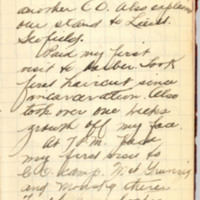 another C.O. Also explain
our stand to Lieut.
Scofield.
Paid my first
visit to Barber. Took
first haircut since
incarceration. Also
took over one weeks
growth off my face.
At 7 P.M. paid
my first visit to
C.O. camp. Met
and there